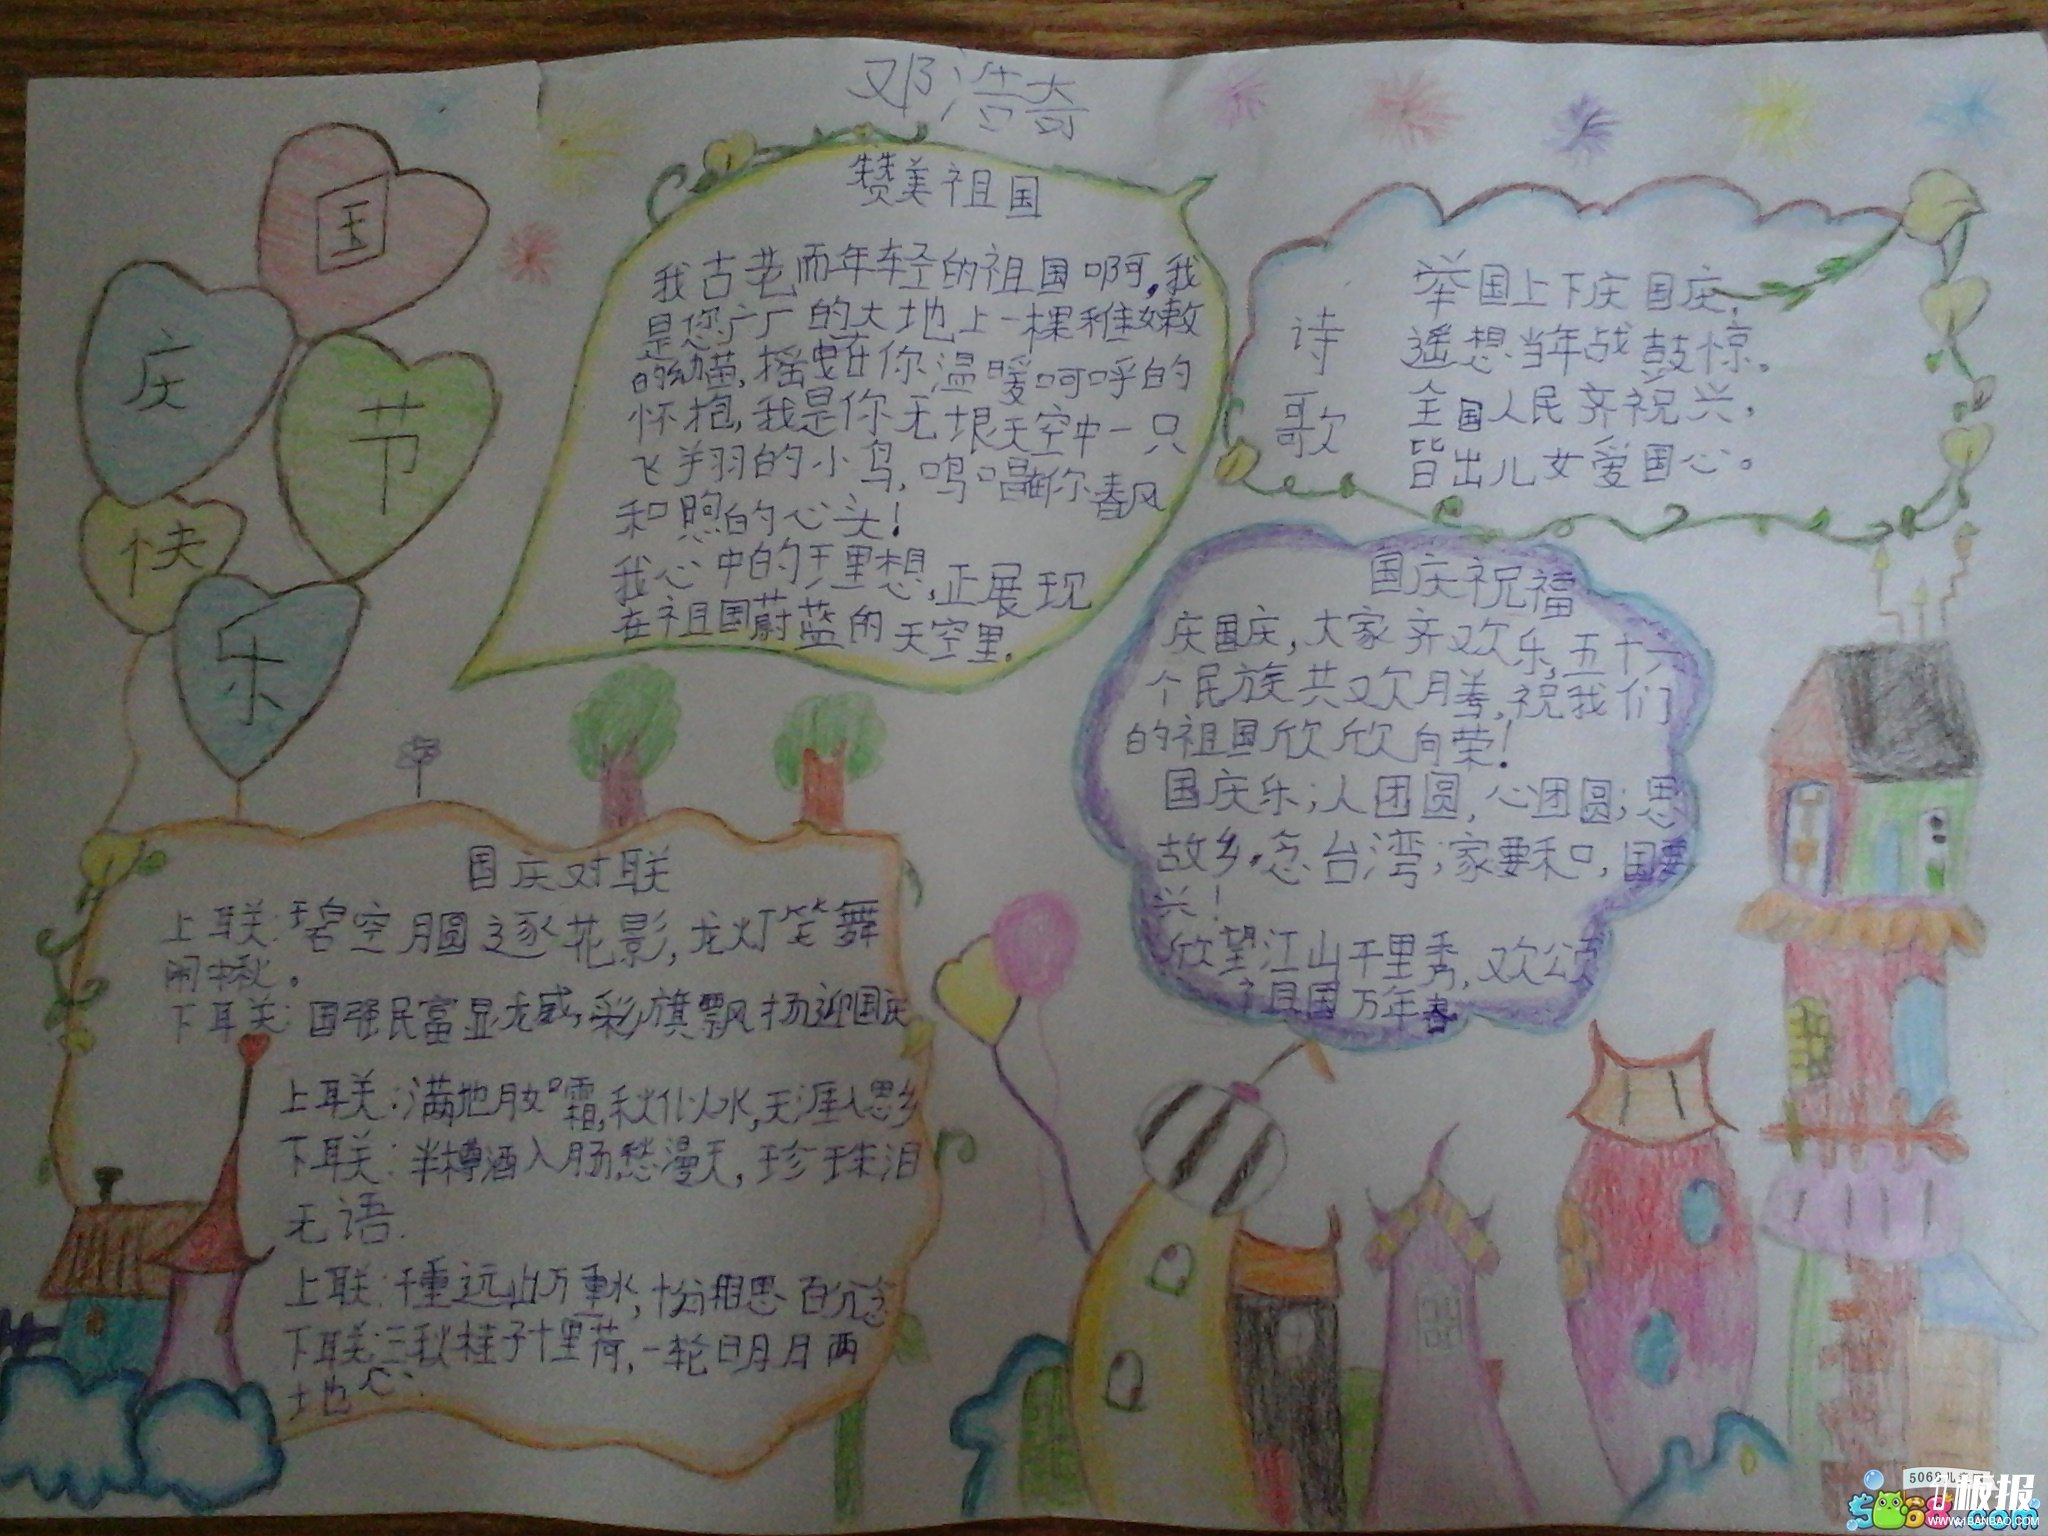 邓浩奇
国
庆
节
快
乐
赞美祖国
我古老而年轻的祖国啊,我
是您广厂的大地上一棵稚嫩
的幼苗,摇曳在你温暖呵呼的
怀抱,我是你无垠天空中一只
飞翔的小鸟,鸣唱在你春风
和煦的心头!
我心中的理想,正展现
在祖国蔚蓝的天空里.
诗
歌
举国上下庆国庆,
遥想当年战鼓惊。
全国人民齐祝兴,
皆出儿女爱国心。
国庆祝福
庆国庆,大家齐欢乐,五十六
个民族共欢腾,祝我们
的祖国欣欣向荣!
国庆乐;人团圆,心团圆;思
故乡,念台湾;家要和,国要
兴!
欣望江山千里秀,欢颂
祖国万年春
国庆对联
上联:碧空月圆逐花影,龙灯笙舞
闹楸。
下联:国强民富显龙威,彩旗飘扬迎国庆
上联:满地月如霜,秋似水,天涯人思乡
下联:半樽酒入肠,愁漫天,珍珠泪
无语.
上联:千重远山万重水,十分相思百分念
下联:三秋桂子十里荷,一轮明月两
地心.
5068儿
板报
WWW.41BANBAO.COM